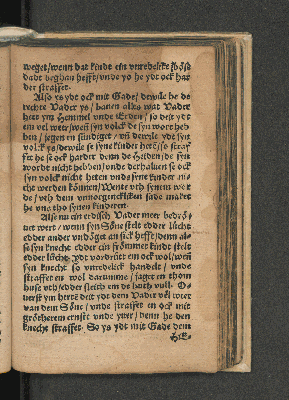 weget / wenn dat kindt ein vnredelcke bösz
dadt beghan hefft / vnde yo he ydt ock har
der straffet.
Also ys ydt ock mit Gade / dewile he de
rechte Vader ys / bauen alles wat Vader
het ym Hemmel vnde Erden / so deit ydt
em vel weer / wen syn volck de syn wort heb
ben / jegen en sündiget / vn dewile ydt syn
volck ys / dewile se syne kinder heten / se straf
fet he se ock harder denn de Heiden / de syn
wordt nicht hebben / vnde derhaluen se ock
syn volck nicht heten vnde syne kinder ni-
cht werden können / Wente vth synem wor
de / vth dem vnuorgencklicken sade maket
he vns tho synen kinderen.
Also nu ein erdisch Vader meer bedrö-
uet wert / wenn syn Söne stelt edder lücht
edder ander vndöget an sick hefft / denn al-
se syn knecht edder ein frömmet kindt stelt
edder lücht / ydt vordrüt em ock wol / wen
syn knecht so vnredelck handelt / vnde
straffet en wol darumme / jaget en thom
huse vth / edder sleith em de huth vull. O-
uerst ym herte deit ydt dem Vader vel weer
van dem Söne / vnde straffet en ock mit
grötherem ernste vnde yuer / denn he den
knecht straffet. So ys ydt mit Gade dem